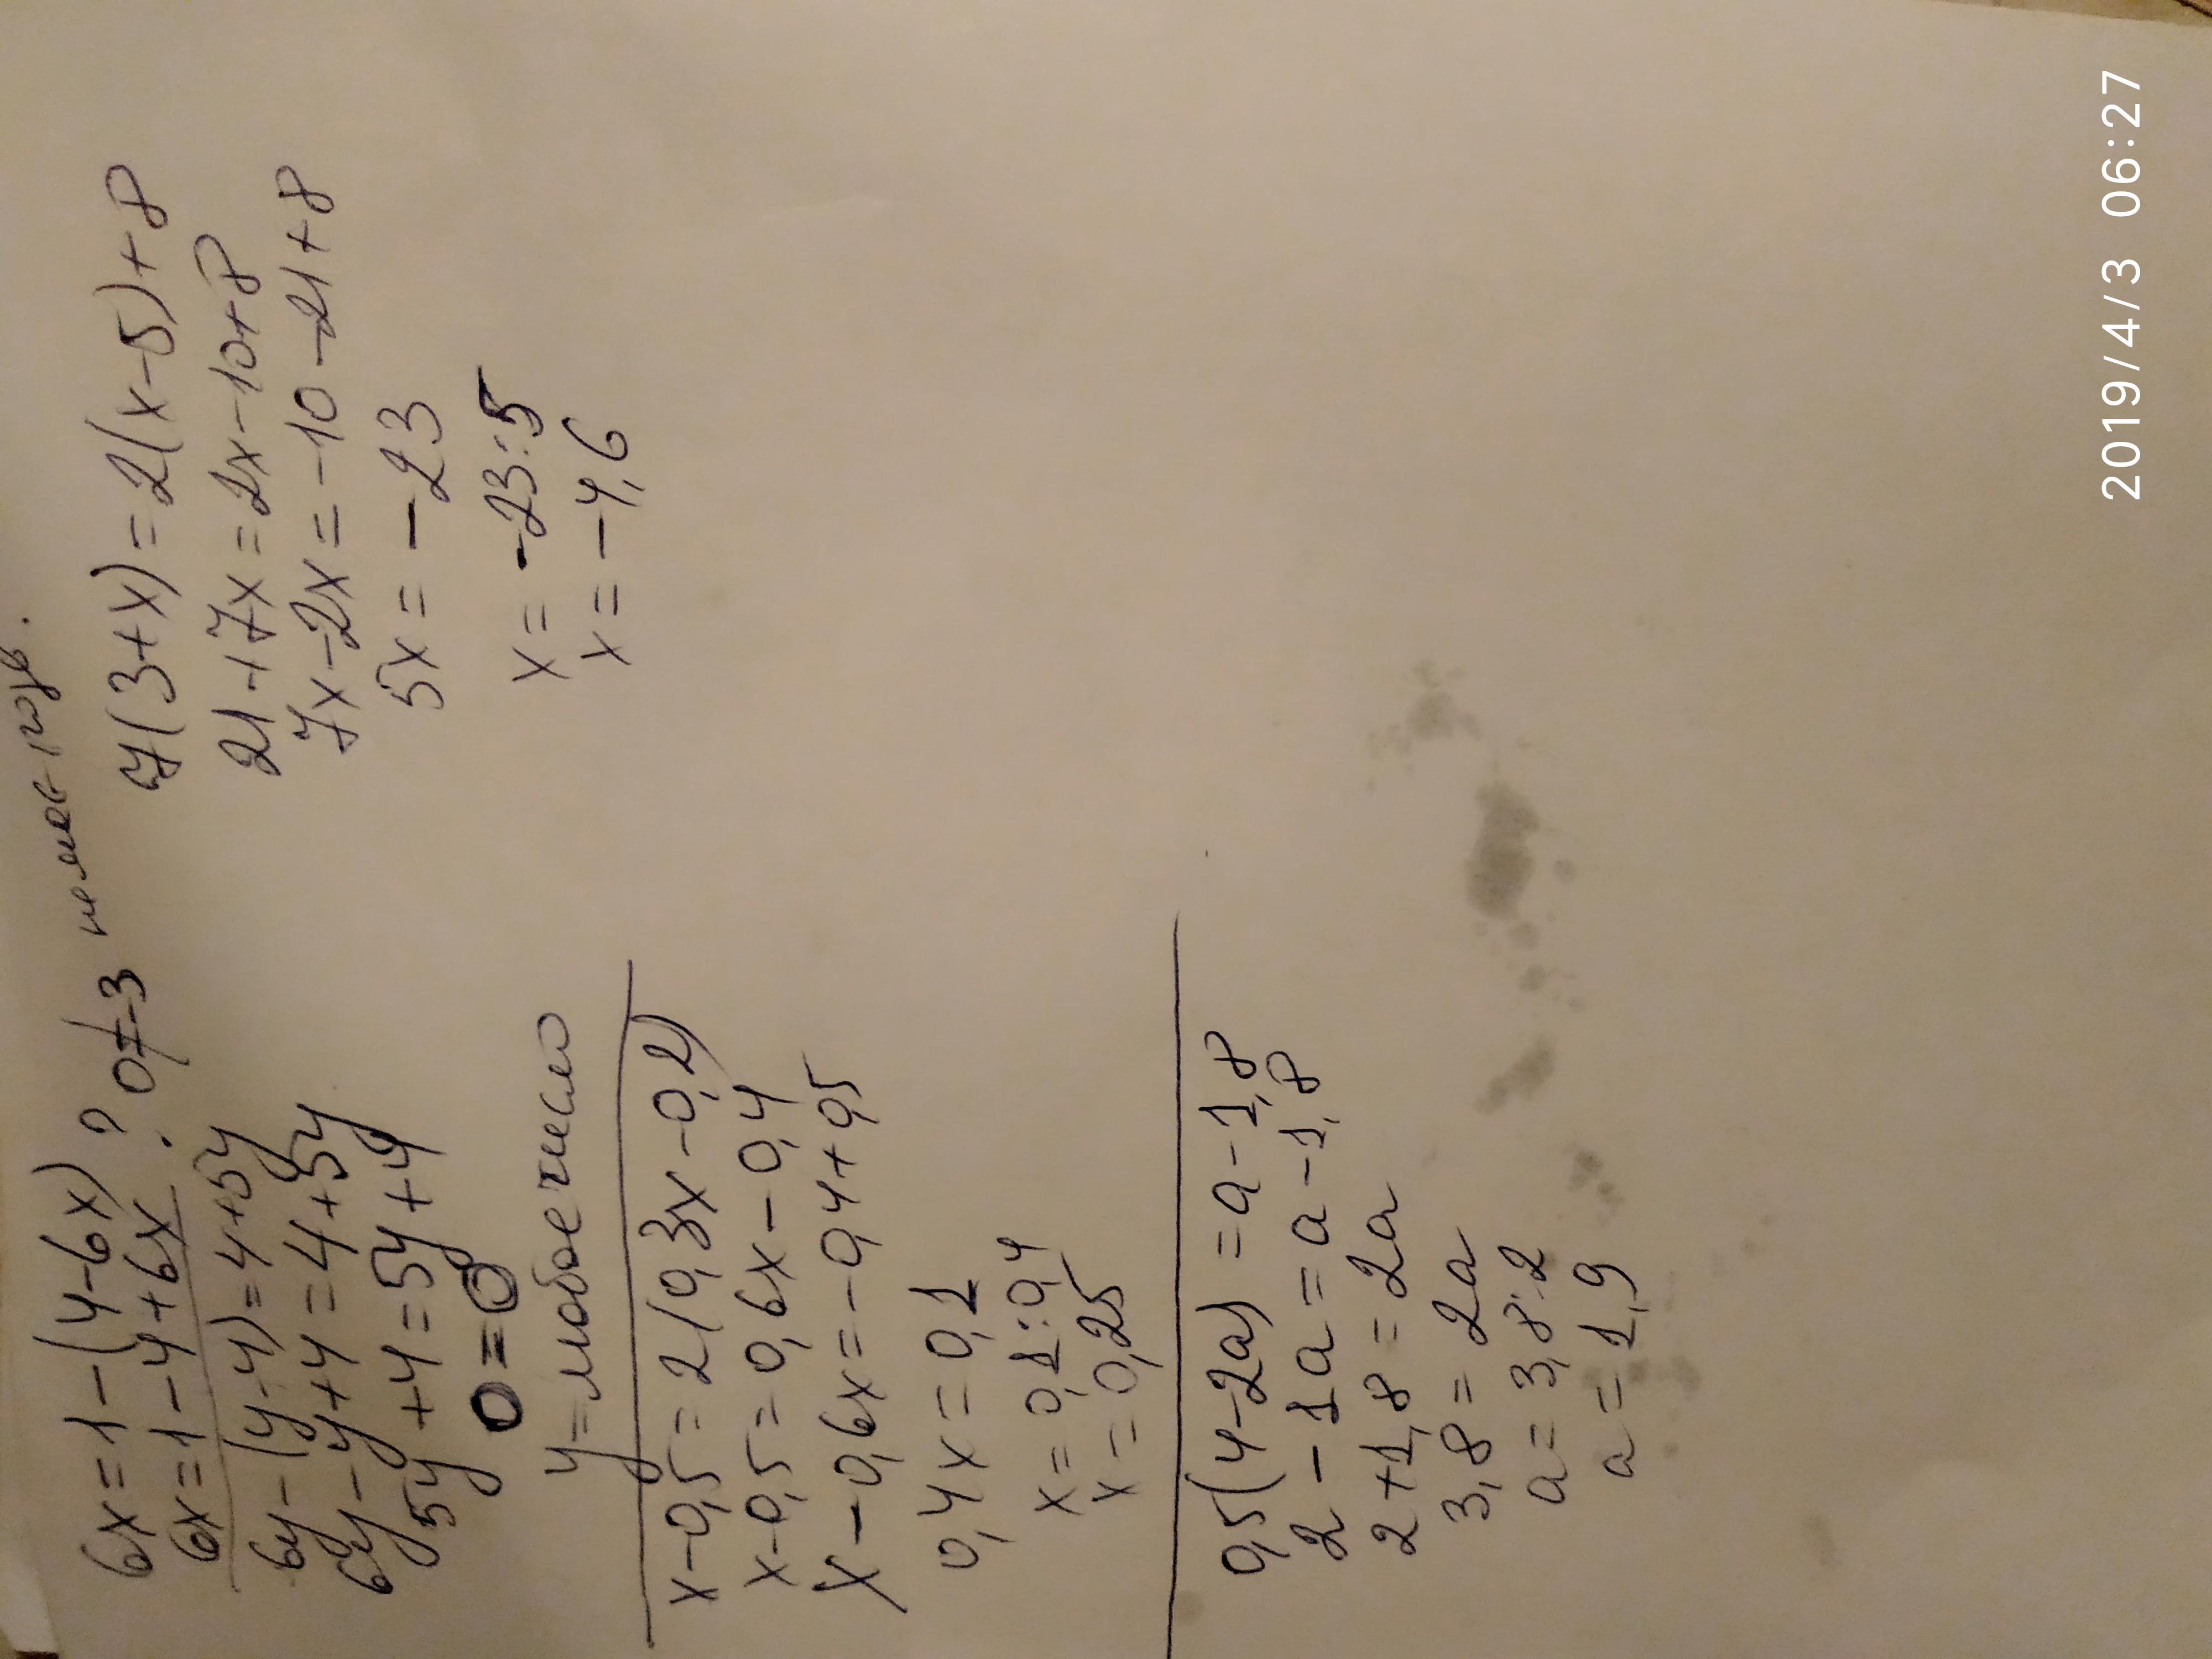 6x=1-(4-6x) ? 0≠-3
6x=1-4+6x
6y-(y-4)=4+5y
6y-y+4=4+5y
5y+4=5y+4
0=0
y=любое число
x-0,5=2(0,3x-0,2)
x-0,5=0,6x-0,4
x-0,6x=-0,4+0,5
0,4x=0,1
x=0,1:0,4
x=0,25
0,5(4-2a)=a-1,8
2-1a=a-1,8
2+1,8=2a
3,8=2a
a=3,8:2
a=1,9
7(3+x)=2(x-5)+8
21+7x=2x-10+8
7x-2x=-10-21+8
5x=-23
x=-23:5
x=-4,6
2019/4/3 06:27